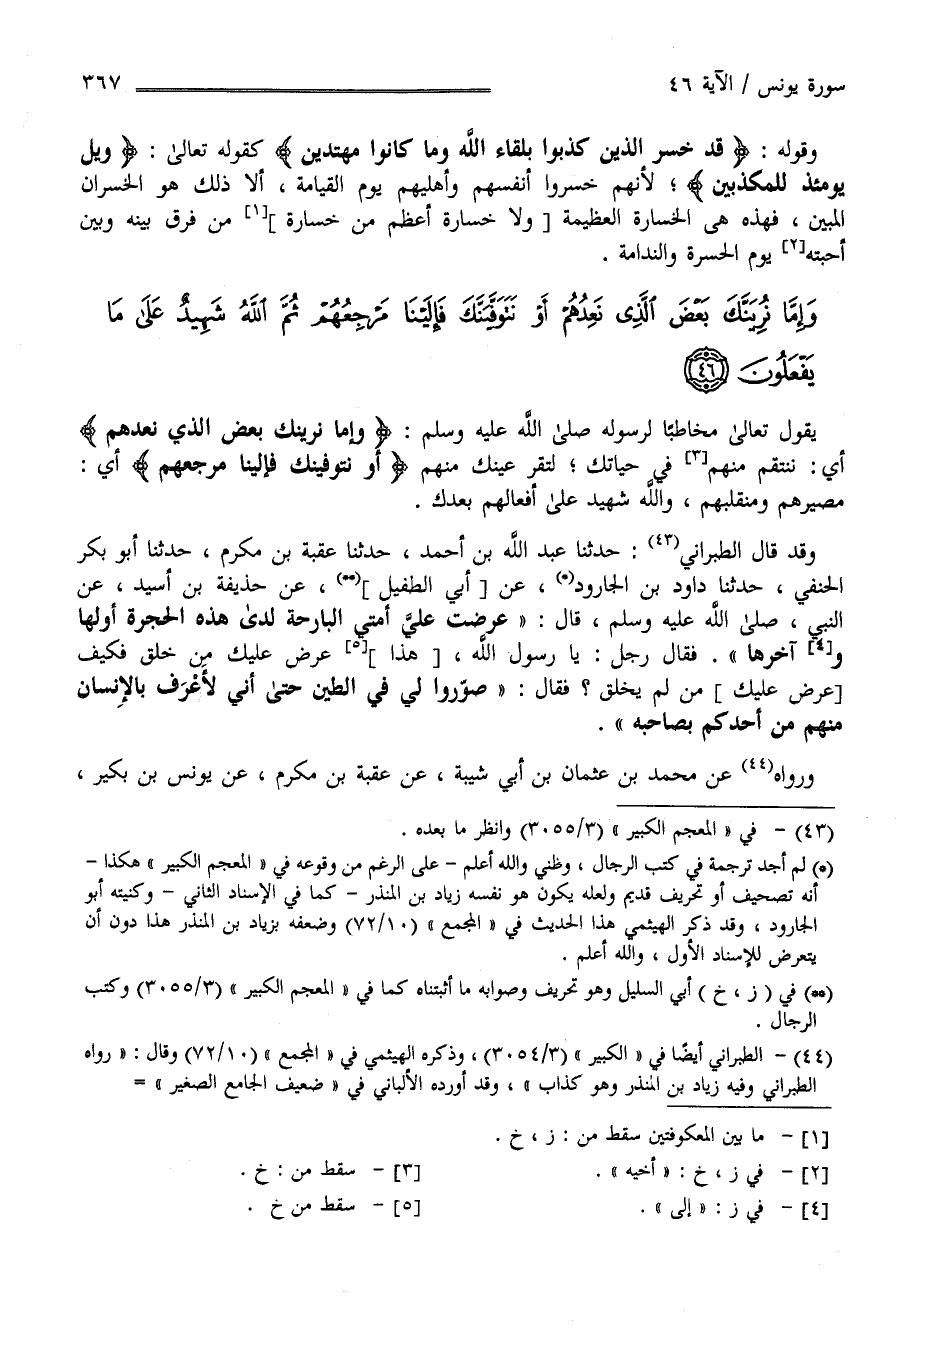 سورة يونس / الآية ٤٦ ٣٦٧
وقوله : ﴿ قد خسر الذين كذبوا بلقاء اللَّه وما كانوا مهتدين ﴾ كقوله تعالىٰ : ﴿ ويل
يومئذ للمكذبين ﴾ ؛ لأنهم خسروا أنفسهم وأهليهم يوم القيامة ، ألا ذلك هو الخسران
المبين ، فهذه هى الخسارة العظيمة [ ولا خسارة أعظم من خسارة ][١] من فرق بينه وبين
أحبته[٢] يوم الحسرة والندامة .
وَإِمَّا نُرِيَنَّكَ بَعْضَ ٱلَّذِى نَعِدُهُمْ أَوْ نَتَوَفَّيَنَّكَ فَإِلَيْنَا مَرْجِعُهُمْ ثُمَّ ٱللَّهُ شَهِيدٌ عَلَىٰ مَا
يَفْعَلُونَ ٤٦
يقول تعالىٰ مخاطبًا لرسوله صلىٰ اللَّه عليه وسلم : ﴿ وإما نرينك بعض الذي نعدهم ﴾
أي : ننتقم منهم[٣] في حياتك ؛ لتقر عينك منهم ﴿ أو نتوفينك فإلينا مرجعهم ﴾ أي :
مصيرهم ومنقلبهم ، واللَّه شهيد علىٰ أفعالهم بعدك .
وقد قال الطبراني(٤٣) : حدثنا عبد اللَّه بن أحمد ، حدثنا عقبة بن مكرم ، حدثنا أبو بكر
الحنفي ، حدثنا داود بن الجارود(*) ، عن [ أبي الطفيل ](**) ، عن حذيفة بن أسيد ، عن
النبي ، صلىٰ اللَّه عليه وسلم ، قال : « عرضت عليَّ أمتي البارحة لدىٰ هذه الحجرة أولها
و[٤] آخرها » . فقال رجل : يا رسول اللَّه ، [ هذا ][٥] عرض عليك من خلق فكيف
[عرض عليك ] من لم يخلق ؟ فقال : « صوّروا لي في الطين حتىٰ أني لأَعْرَف بالإِنسان
منهم من أحدكم بصاحبه » .
ورواه(٤٤) عن محمد بن عثمان بن أبي شيبة ، عن عقبة بن مكرم ، عن يونس بن بكير ،
(٤٣) - في « المعجم الكبير » (٣٠٥٥/٣) وانظر ما بعده .
(*) لم أجد ترجمة في كتب الرجال ، وظني والله أعلم - على الرغم من وقوعه في « المعجم الكبير » هكذا -
أنه تصحيف أو تحريف قديم ولعله يكون هو نفسه زياد بن المنذر - كما في الإسناد الثاني - وكنيته أبو
الجارود ، وقد ذكر الهيثمي هذا الحديث في « المجمع » (٧٢/١٠) وضعفه بزياد بن المنذر هذا دون أن
يتعرض للإسناد الأول ، والله أعلم .
(**) في ( ز ، خ ) أبي السليل وهو تحريف وصوابه ما أثبتناه كما في « المعجم الكبير » (٣٠٥٥/٣) وكتب
الرجال .
(٤٤) - الطبراني أيضًا في « الكبير » (٣٠٥٤/٣) ، وذكره الهيثمي في « المجمع » (٧٢/١٠) وقال : « رواه
الطبراني وفيه زياد بن المنذر وهو كذاب » ، وقد أورده الألباني في « ضعيف الجامع الصغير » =
[١] - ما بين المعكوفتين سقط من : ز ، خ .
[٢] - في ز ، خ : « أخيه » . [٣] - سقط من : خ .
[٤] - في ز : « إلى » . [٥] - سقط من خ .